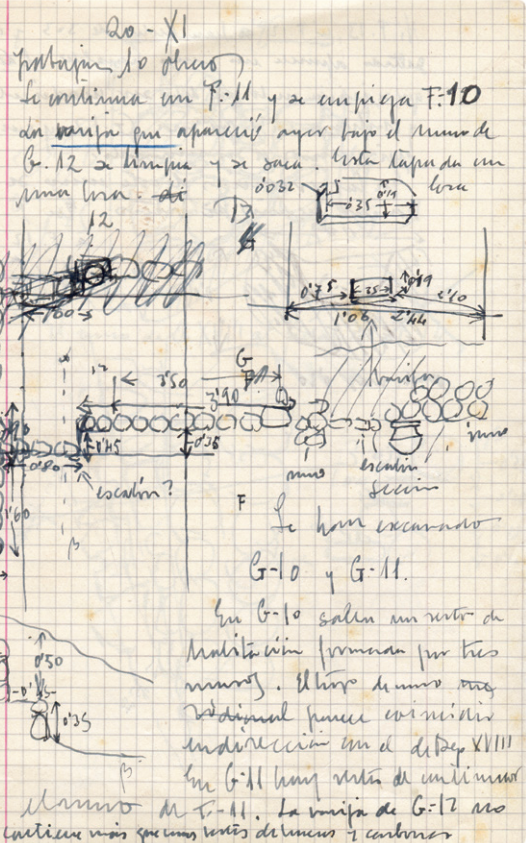 20 - XI
Trabajan 10 obreros
Se continua con F-11 y se empieza F-10
La vasija que apareció ayer bajo el muro de
G. 12 se limpia y se saca. Esta tapada con
una losa.
losa
0'032
0'35
12
G
0'75
35
0'19
1'06
2'44
G
3'50
3'90
vasija
0'45
0'35
0'80
muro
escalón
muro
sección
escalón?
F
1'60
Se han excavado
G-10 y G-11.
β
En G-10 salen un resto de
habitación formada por tres
0'50
muros. El trozo de muro
0'35
ridional parece coincidir
en dirección con el del Dep XVIII
β
En G-11 hay restos de continuar
el muro de F-11. La vasija de G-12 no
contiene más que unos restos de huesos y carbones